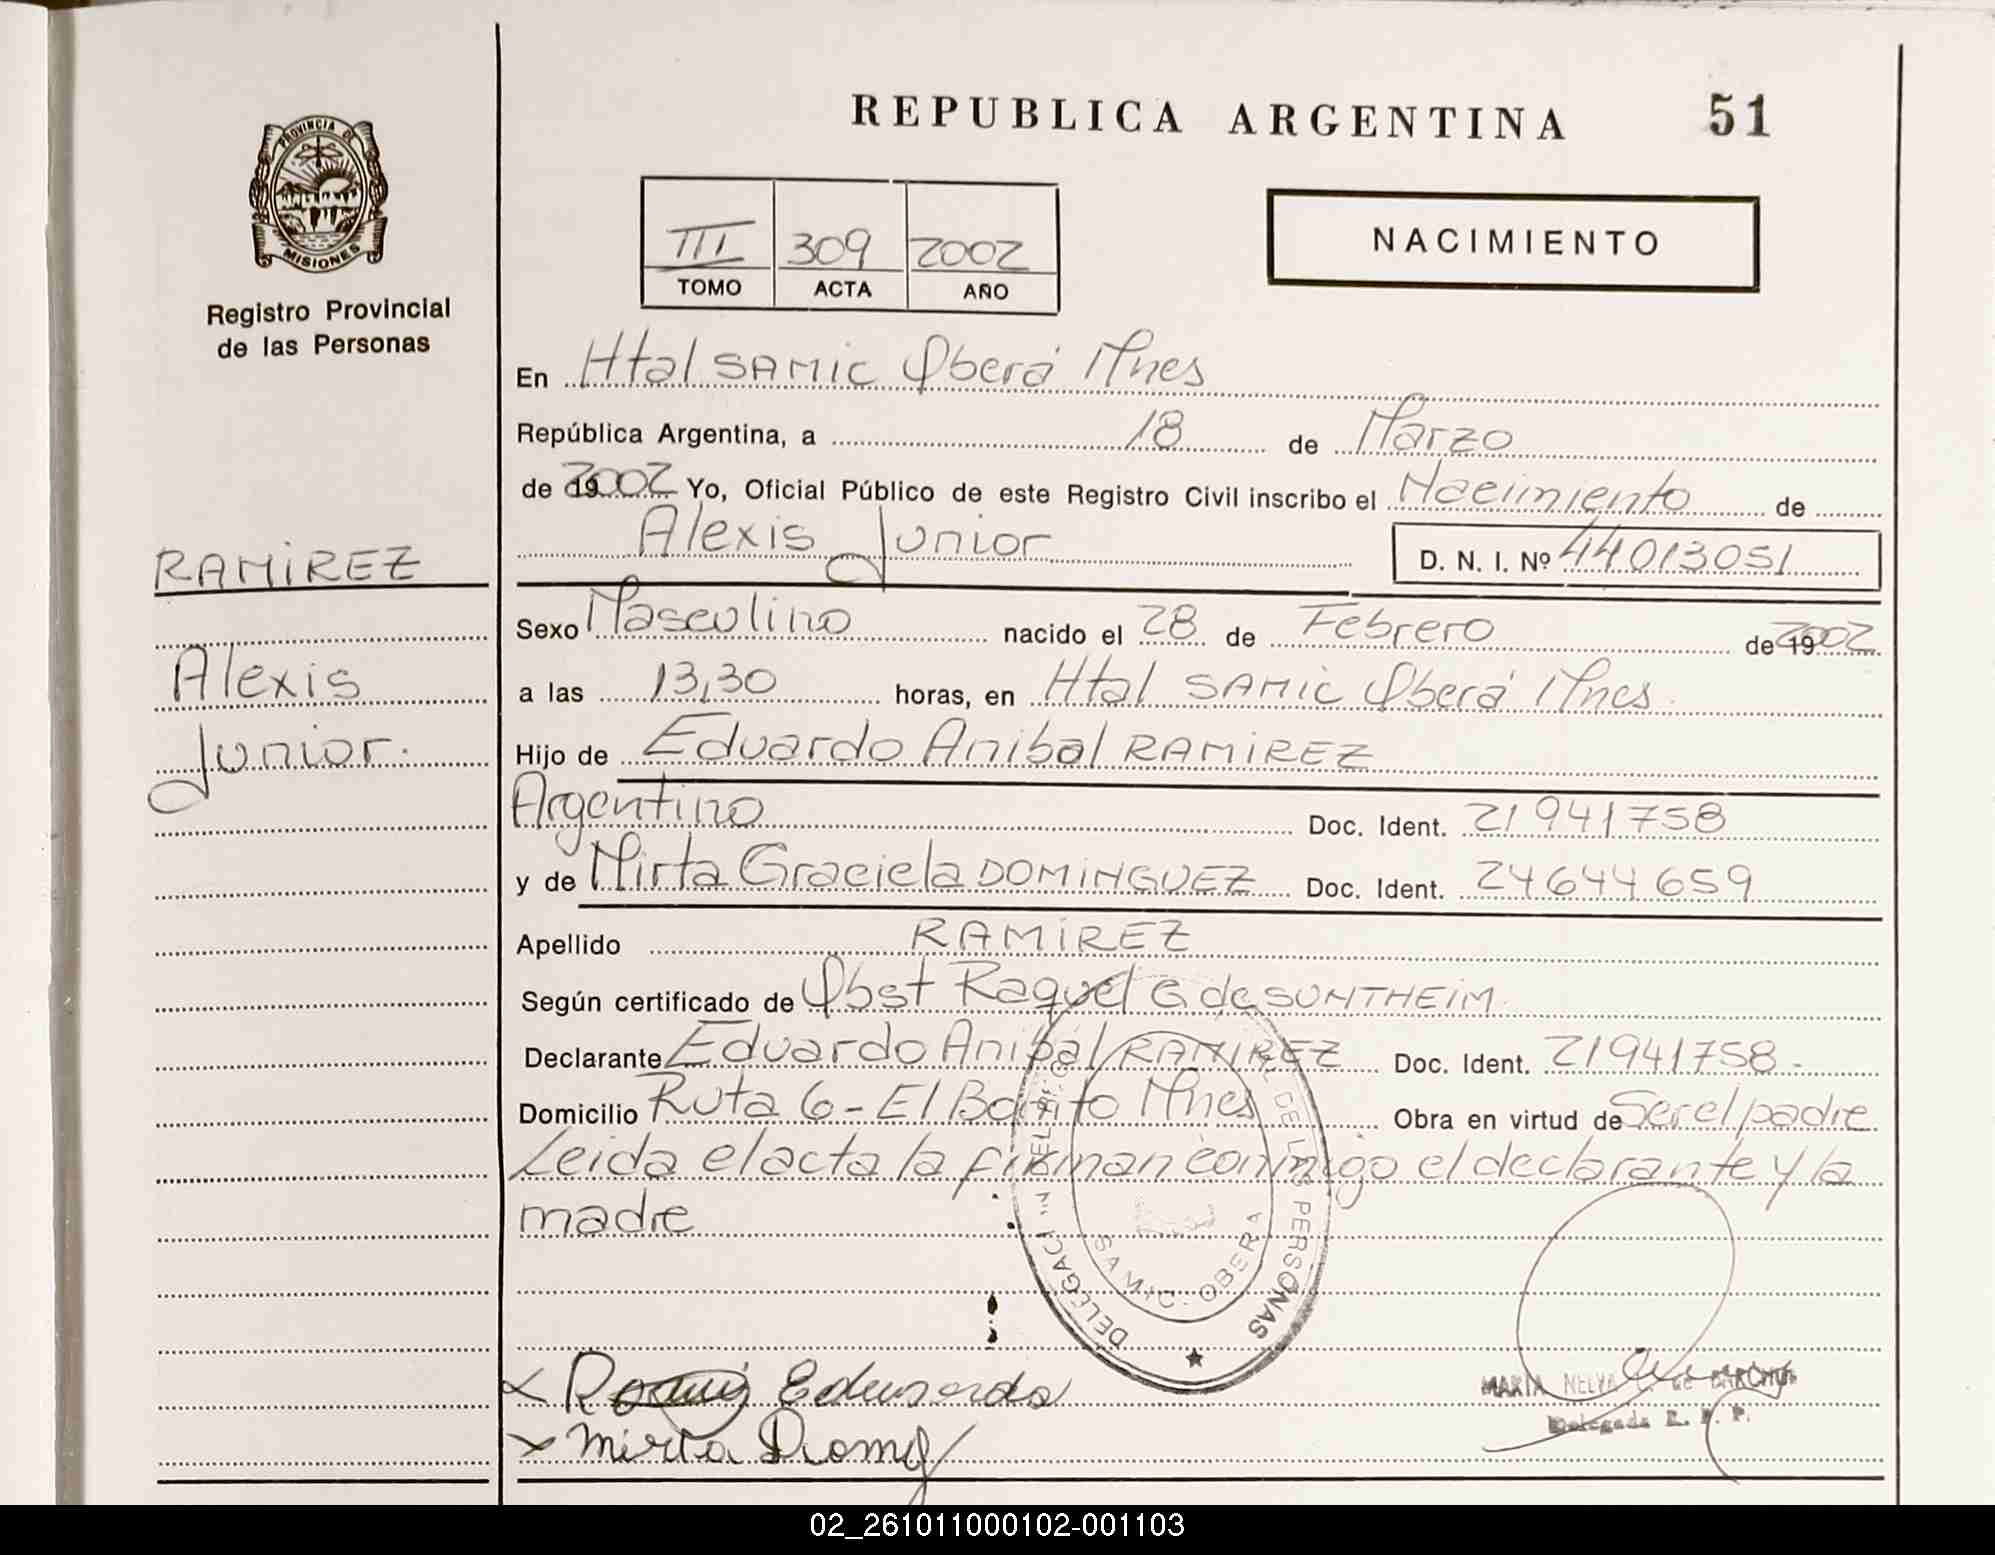 REPUBLICA ARGENTINA
51
PROVINCIA DE
MISIONES
Registro Provincial
de las Personas
III 309 2002
TOMO ACTA AÑO
NACIMIENTO
En Htal SAMIC Oberá Mnes
República Argentina, a 18 de Marzo
de 19 2002 Yo, Oficial Público de este Registro Civil inscribo el Nacimiento de
Alexis Junior
D. N. I. Nº 44013051
RAMIREZ
Alexis
Junior.
Sexo Masculino nacido el 28 de Febrero de 19 2002
a las 13,30 horas, en Htal SAMIC Oberá Mnes.
Hijo de Eduardo Anibal RAMIREZ
Argentino Doc. Ident. 21941758
y de Mirta Graciela DOMINGUEZ Doc. Ident. 24644659
Apellido RAMIREZ
Según certificado de Obst Raquel G de SONTHEIM.
Declarante Eduardo Anibal RAMIREZ Doc. Ident. 21941758.
Domicilio Ruta 6 - El Bonito Mnes Obra en virtud de Ser el padre
Leida el acta la firman conmigo el declarante y la
madre
DE LAS PERSONAS
SAMIC - OBERA
x Eduardo
x Mirta
MARIA NELVA de
Delegada R. P. P.
02_261011000102-001103